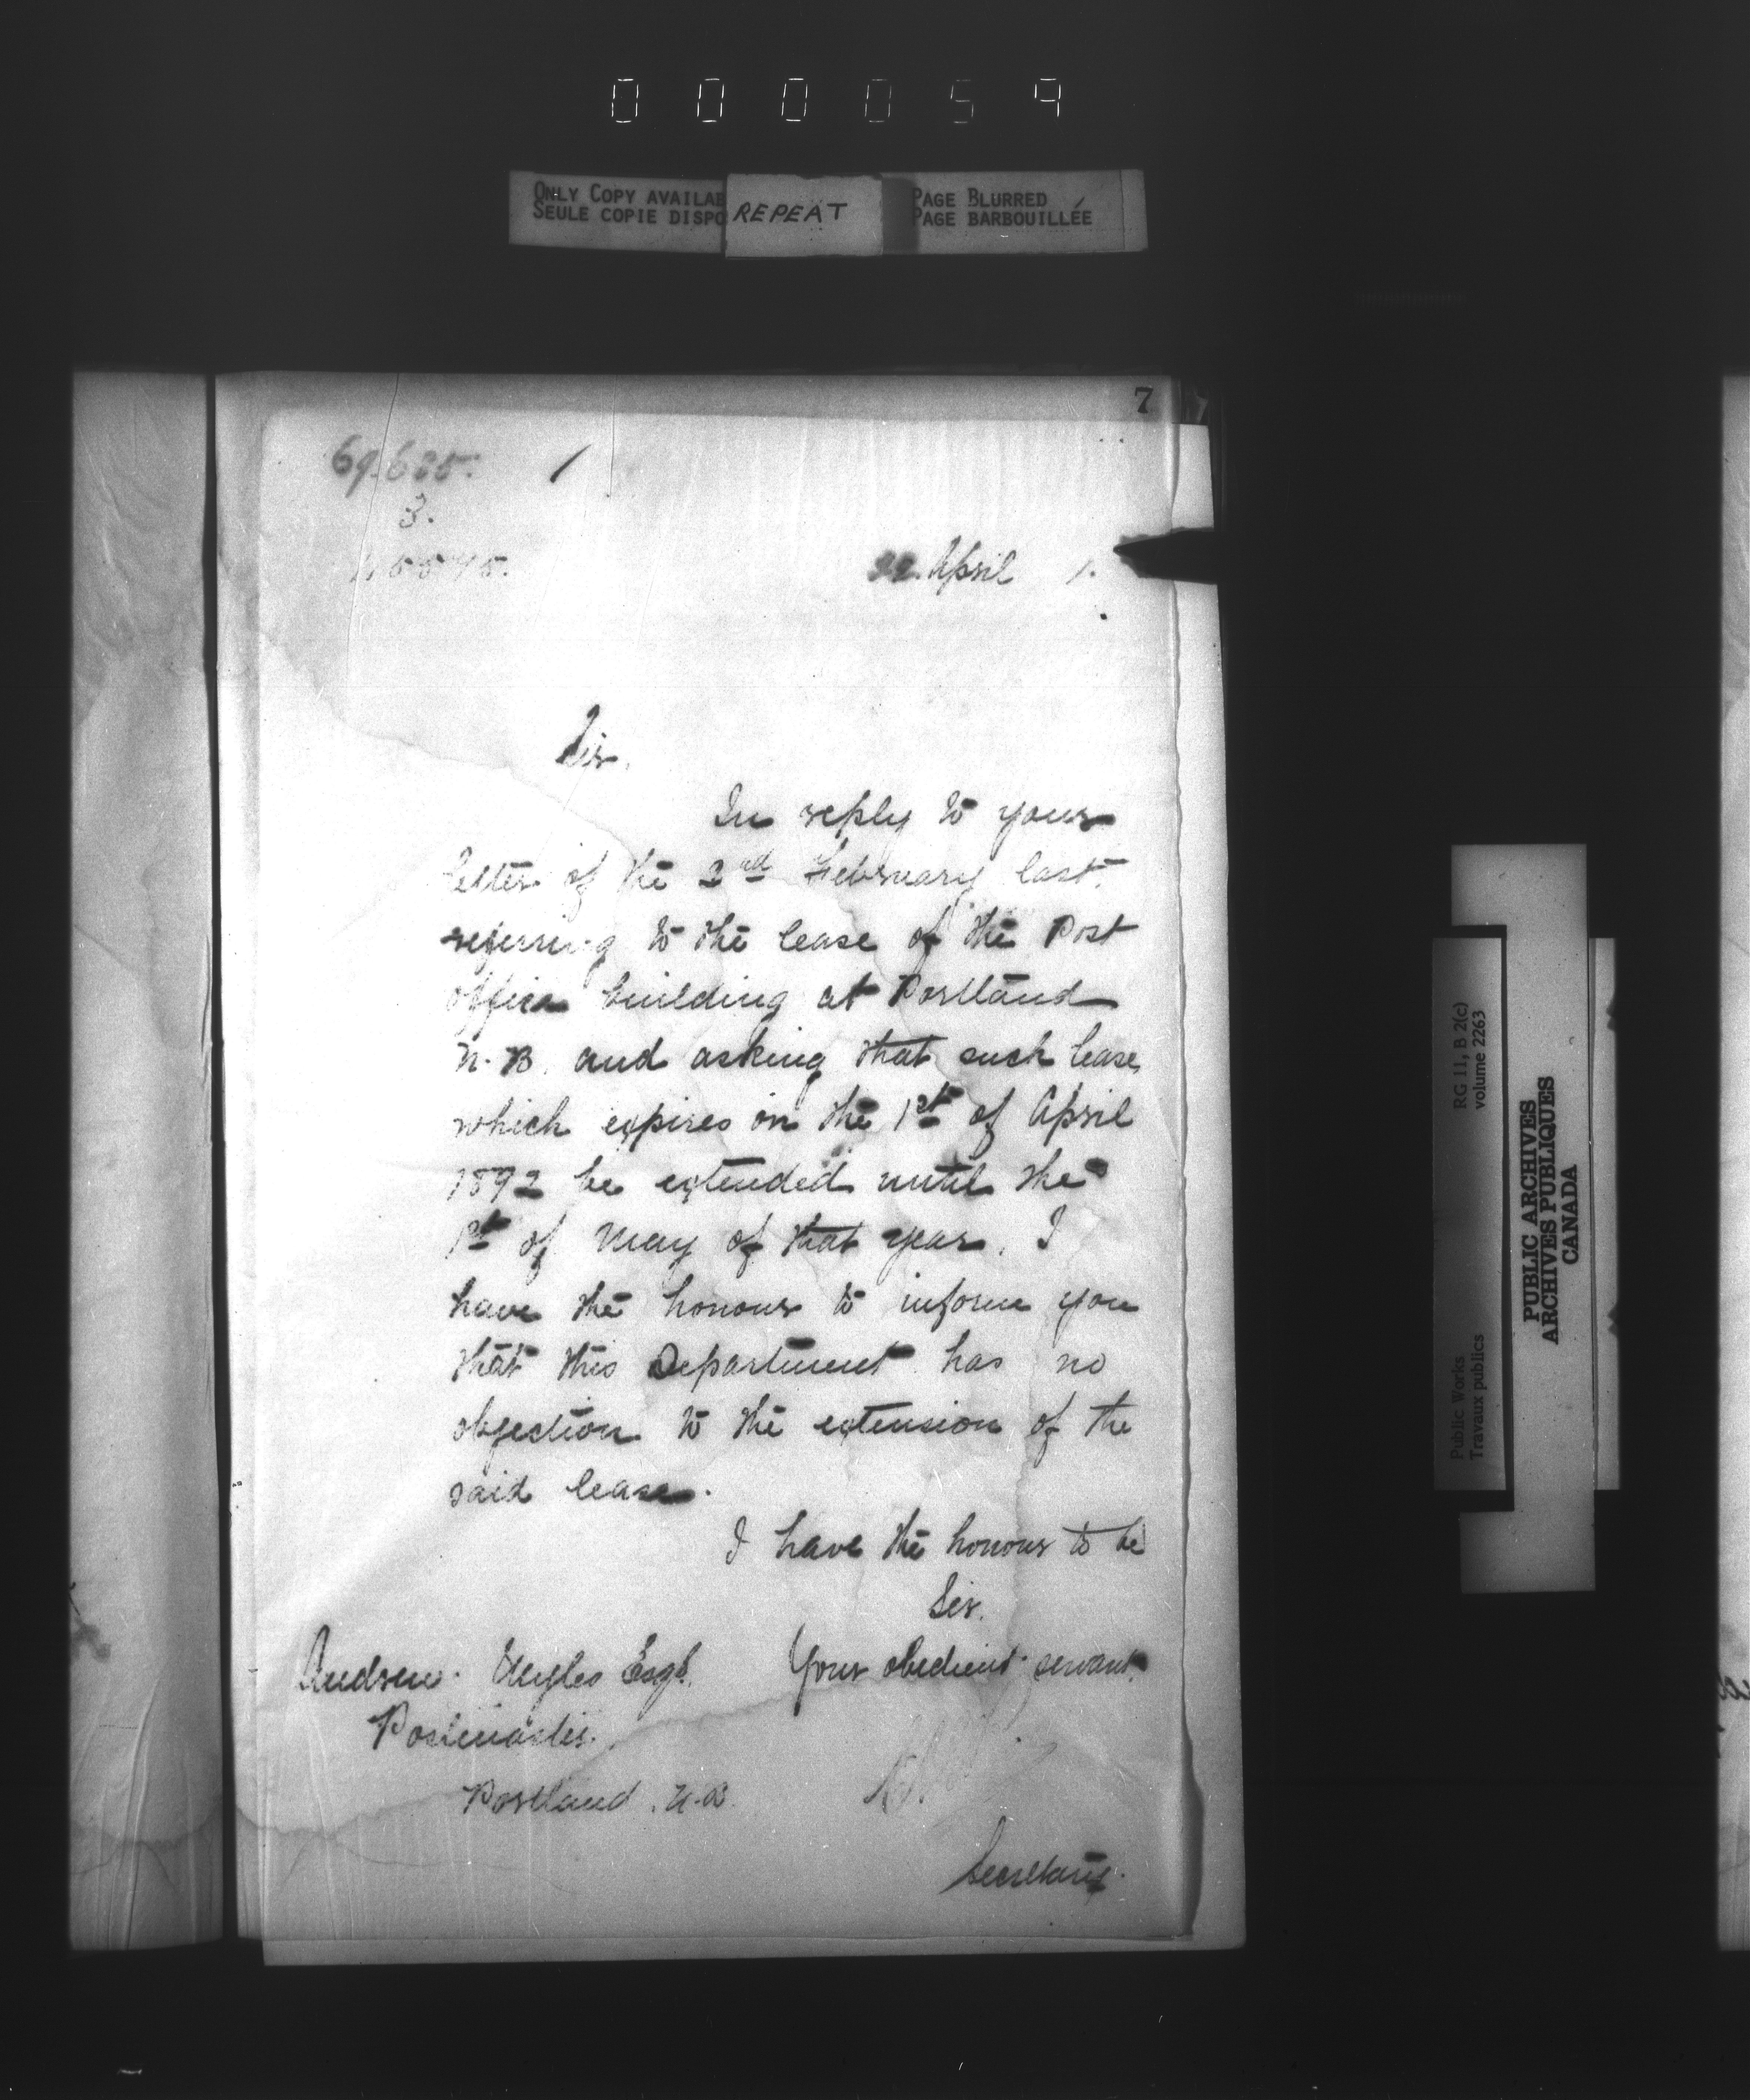 000059
ONLY COPY AVAILAB
SEULE COPIE DISPO
REPEAT
PAGE BLURRED
PAGE BARBOUILLÉE
7
3.
April 1.
Sir,
In reply to your
letter of the 2nd February last.
referring to the lease of the Post
office building at Portland
N.B. and asking that such lease,
which expires on the 1st of April
1892 be extended until the
1st of May of that year, I
have the honour to inform you
that this Department has no
objection to the extension of the
said lease.
I have the honour to be
Sir.
Your obedient servant,
Andrew Esqr.
Postmaster.
Portland, N.B.
Secretary.
RG 11, B 2(c)
volume 2263
Public Works
Travaux publics
PUBLIC ARCHIVES
ARCHIVES PUBLIQUES
CANADA